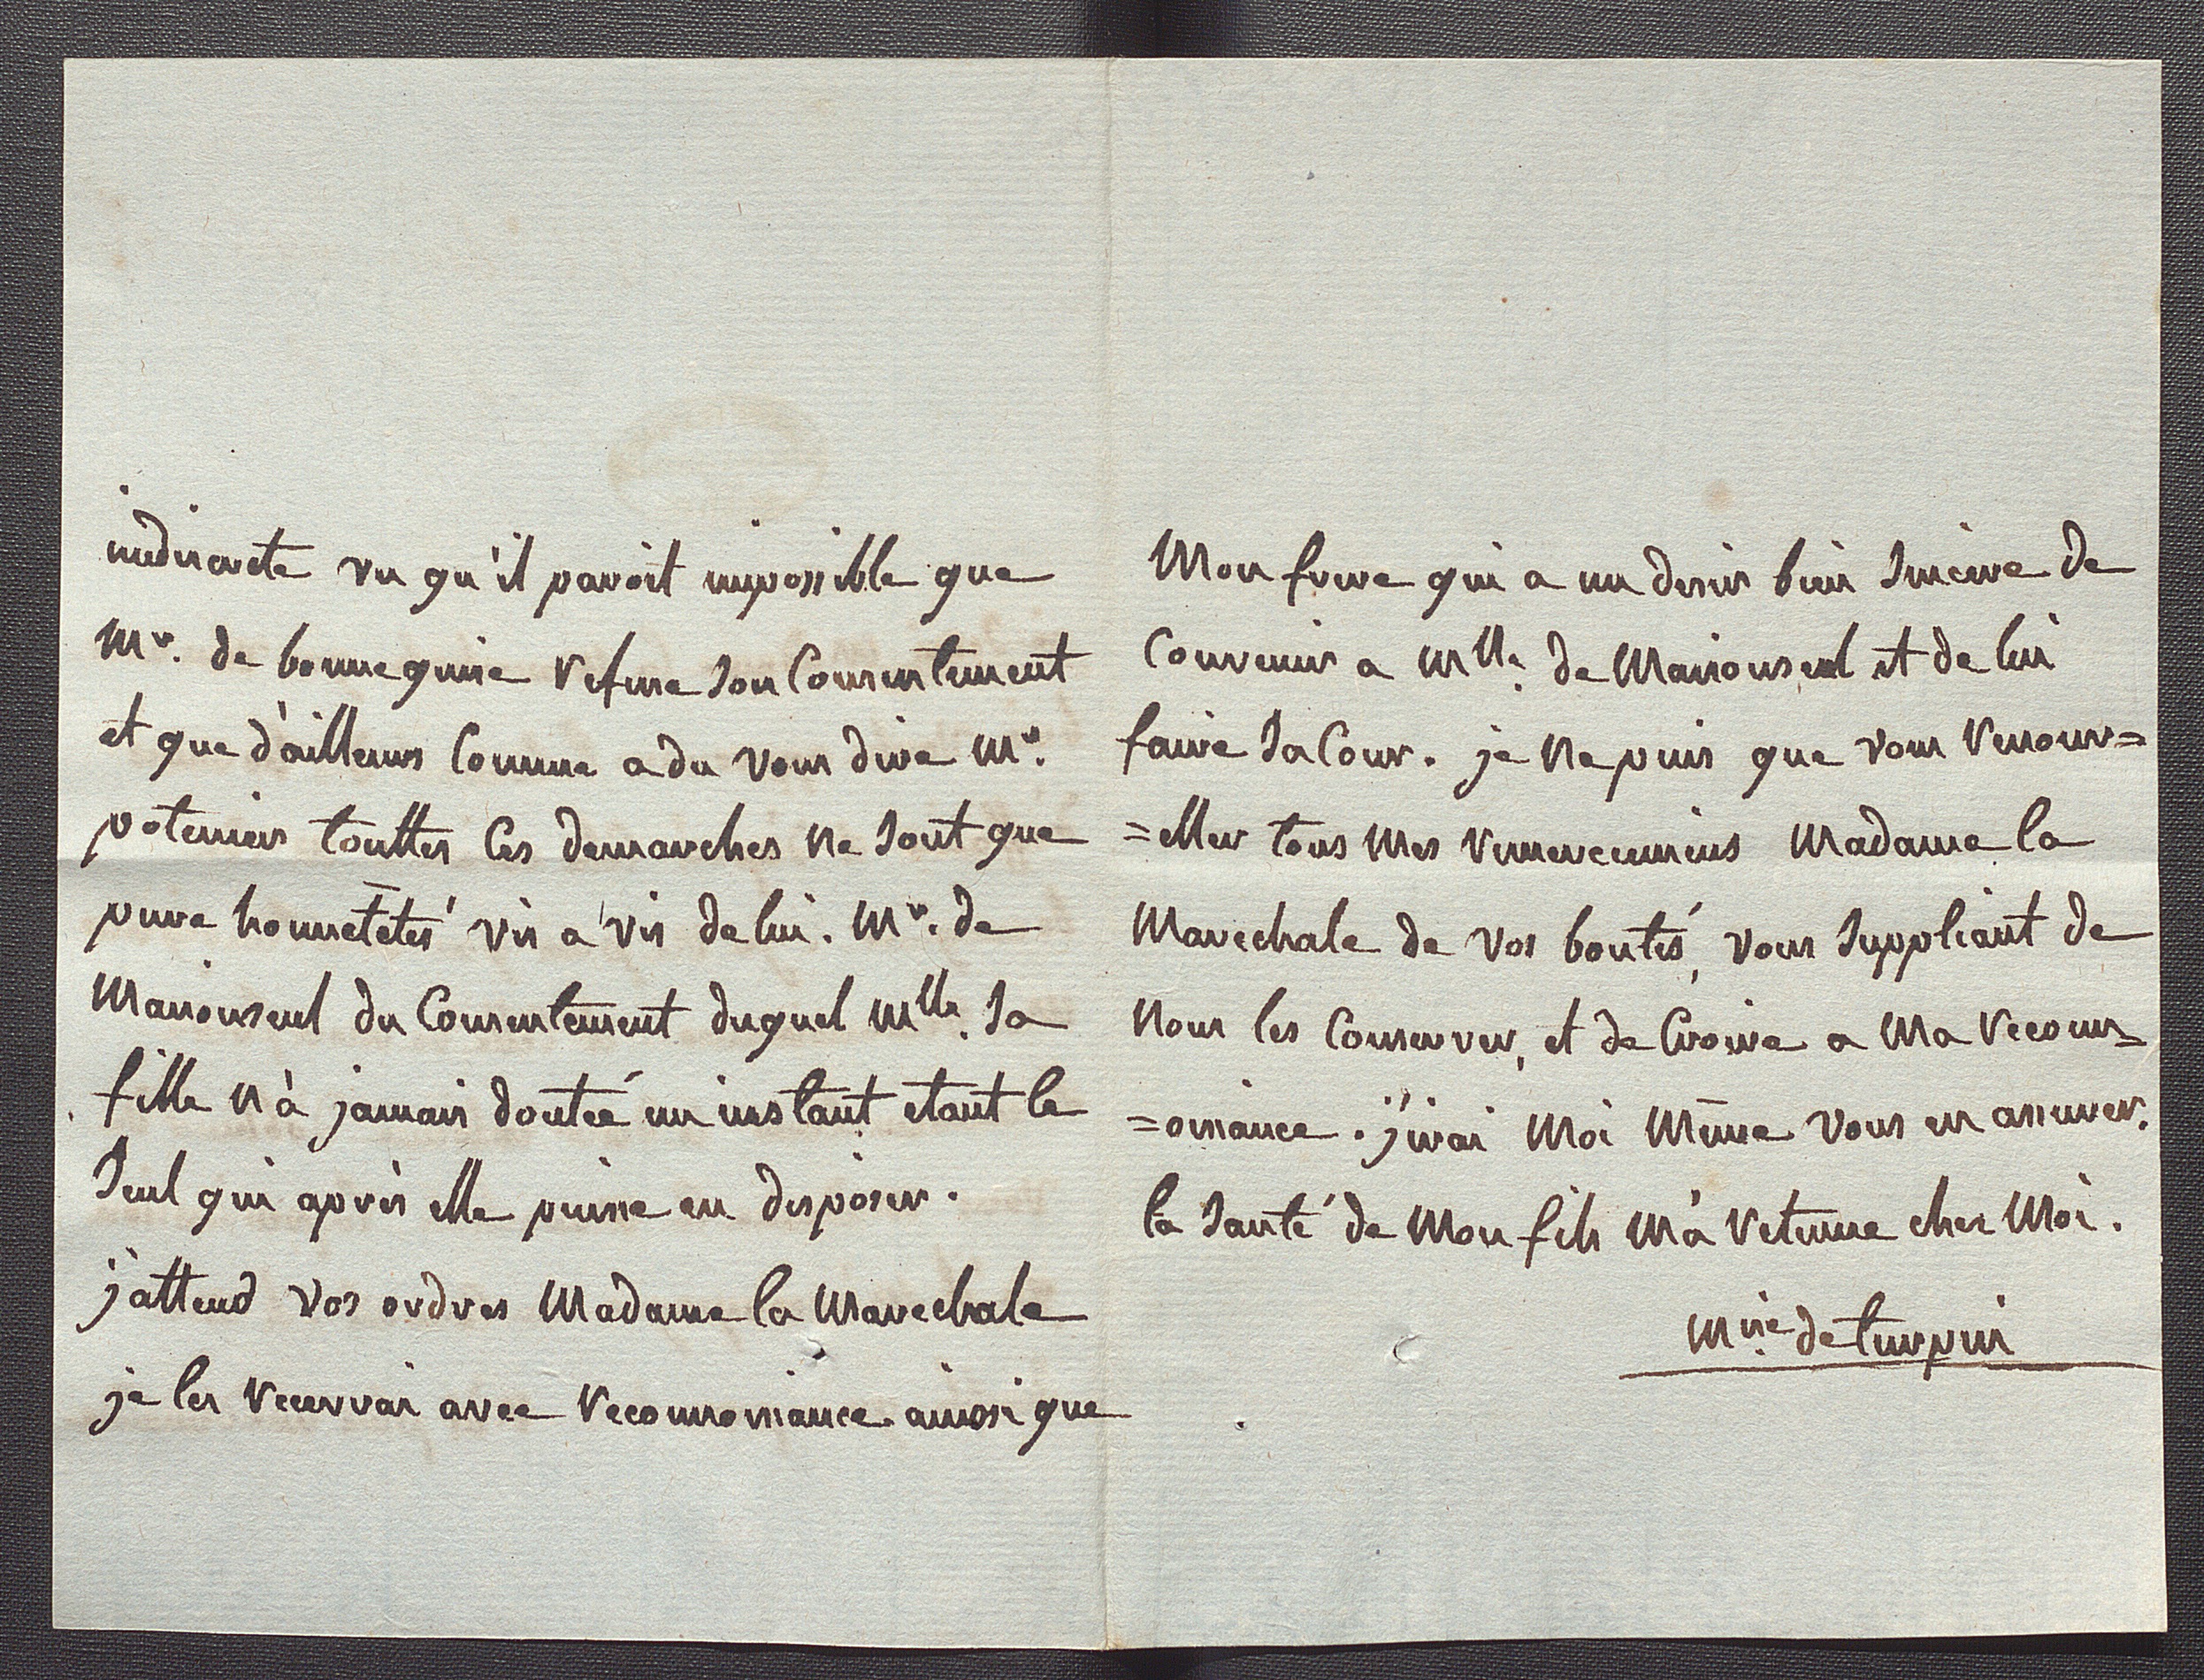 indiscrete vu qu'il paroit impossible que
Mr. de bonneguise refuse son Consentement
et que d'ailleurs Comme a du vous dire Mr.
potemier touttes Ces demarches ne sont que
pure honnêtetés vis a vis de lui. Mr. de
du Consentement duquel Mlle. sa
fille n'à jamais doutée un instant etant le
seul qui aprés elle puisse en disposer.
j'attend vos ordres Madame la Marechale
je les recevrai avec reconnoissance ainsi que
Mon frere qui a un desir bien sincere de
Convenir a Mlle. de et de lui
faire sa Cour. je ne puis que vous renouv=
=eller tous mes remerciemens Madame la
Marechale de vos bontés, vous suppliant de
nous les Conserver, et de Croire a Ma reconn=
=oissance. j'irai Moi Même vous en assurer.
la santé de Mon fils M'à retenue chez Moi.
Mise. de turpin